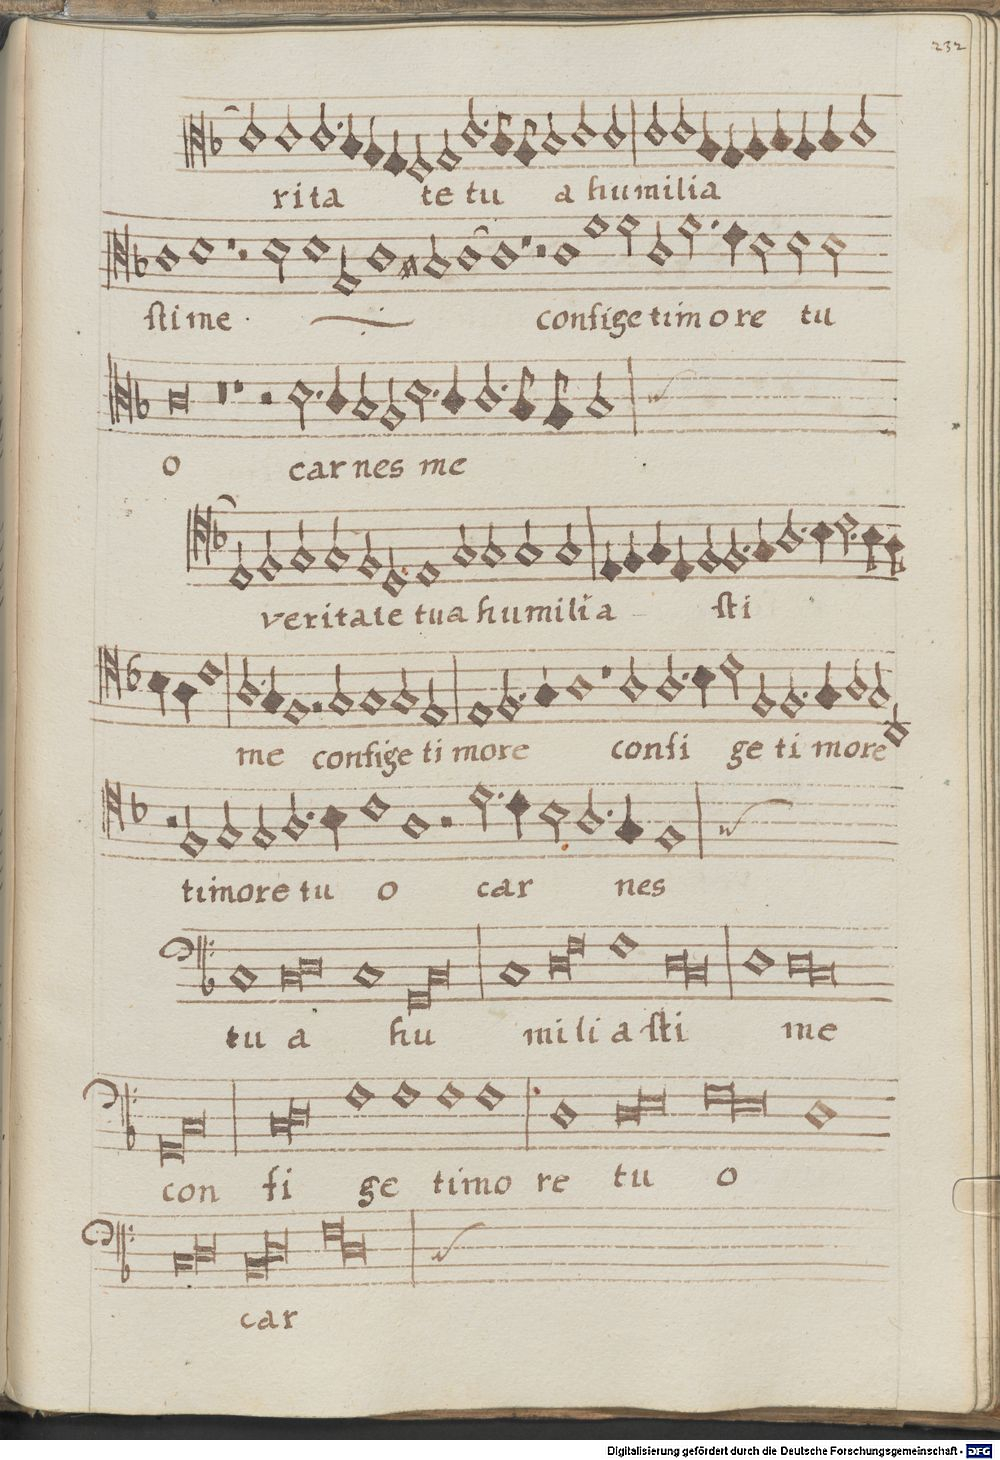 232
rita te tu a humilia
stime . confige timore tu
o carnes me
veritate tua humilia sti
me confige timore confi ge ti more
timore tu o car nes
tu a hu mili a sti me
con fi ge timo re tu o
car
Digitalisierung gefördert durch die Deutsche Forschungsgemeinschaft - DFG